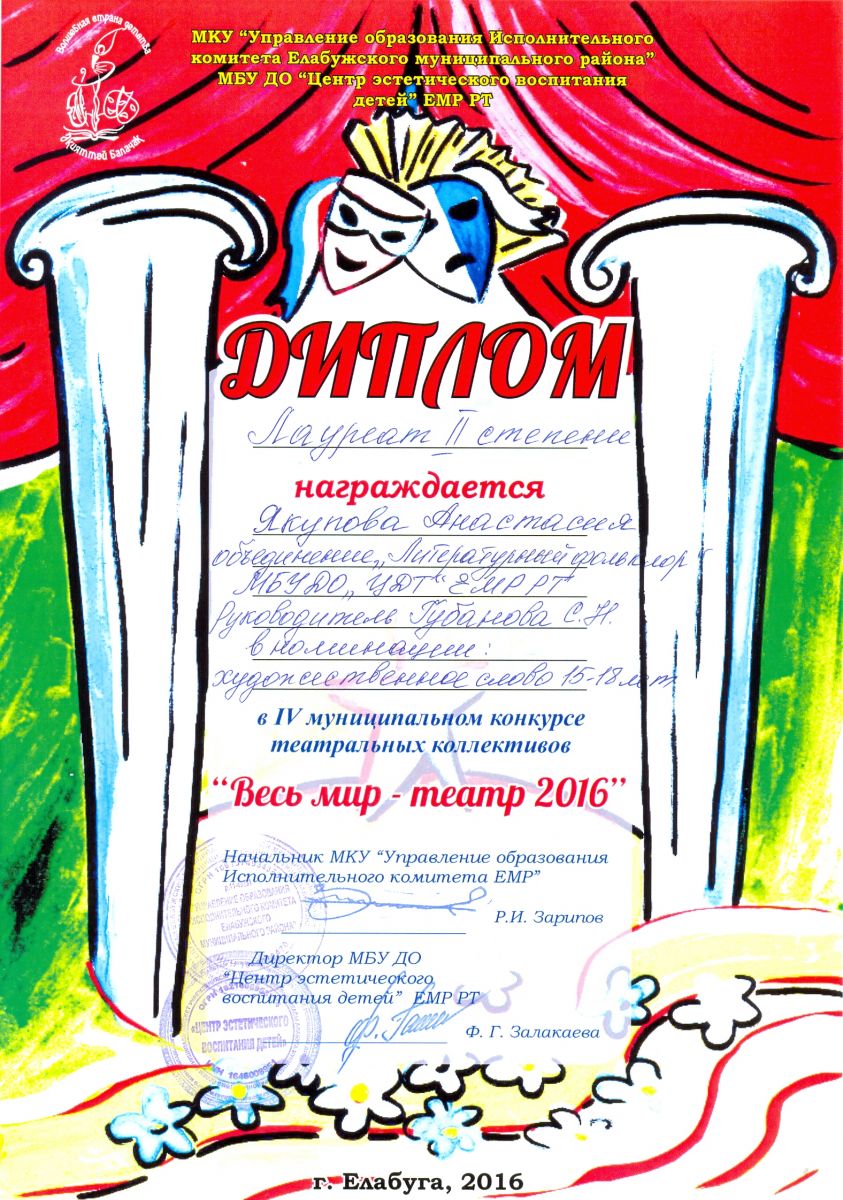 Волшебная страна детства
Әкиятттәй балачак
МКУ “Управление образования Исполнительного
комитета Елабужского муниципального района”
МБУ ДО “Центр эстетического воспитания
детей” ЕМР РТ
ДИПЛОМ
Лауреат II степени
награждается
Якупова Анастасия
объединение „Литературный фольклор“
МБУДО „ЦДТ“ ЕМР РТ
Руководитель Губанова С.Н.
в номинации:
художественное слово 15-18 лет
в IV муниципальном конкурсе
театральных коллективов
“Весь мир - театр 2016”
Начальник МКУ “Управление образования
Исполнительного комитета ЕМР”
Р.И. Зарипов
УПРАВЛЕНИЕ ОБРАЗОВАНИЯ
ИСПОЛНИТЕЛЬНОГО КОМИТЕТА
ЕЛАБУЖСКОГО
МУНИЦИПАЛЬНОГО РАЙОНА
Директор МБУ ДО
“Центр эстетического
воспитания детей” ЕМР РТ
Ф. Г. Залакаева
«ЦЕНТР ЭСТЕТИЧЕСКОГО
ВОСПИТАНИЯ ДЕТЕЙ»
г. Елабуга, 2016